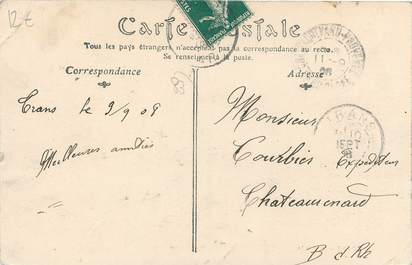 12€
Carte Postale
Tous les pays étrangers n'acceptent pas la correspondance au recto.
Se renseigner à la poste.
Correspondance
Adresse
Trans le 9/9 08
Meilleures amitiés
Monsieur
Courbier Expéditeur
Chateaurenard
B d Rh
TRANS
10
SEPT
11
83